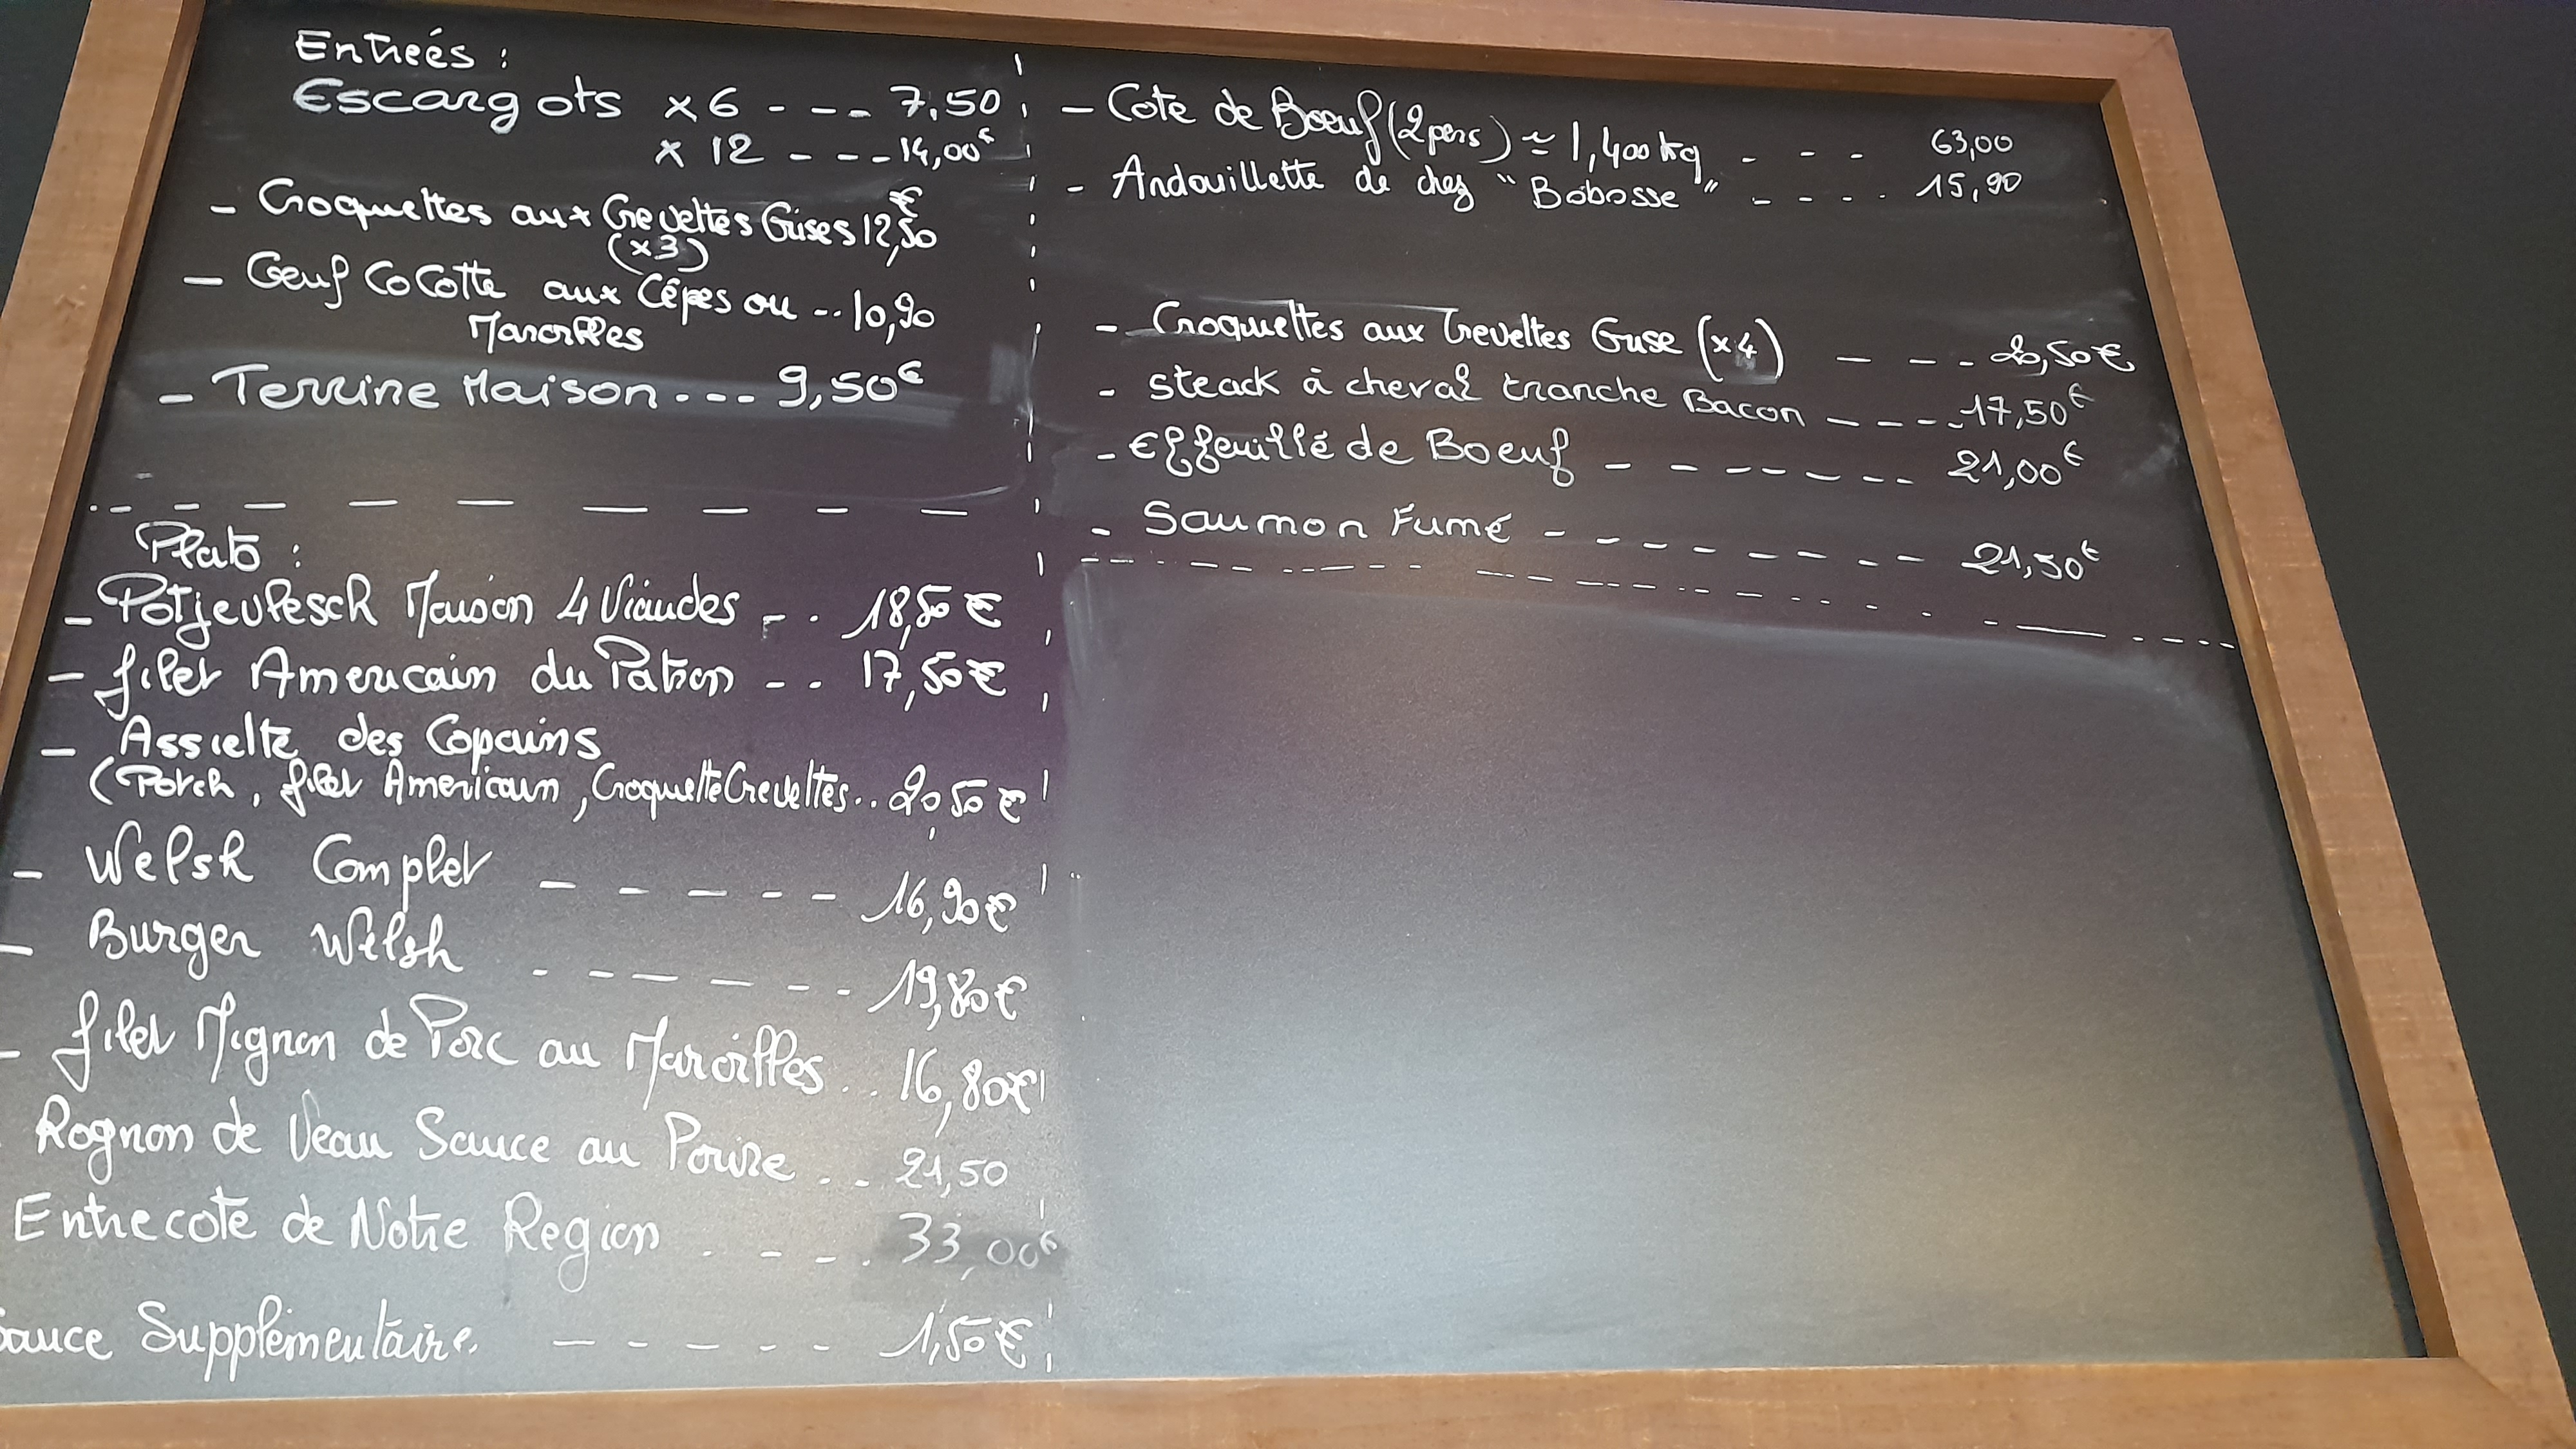 Entreés :
Escargots x 6 - - -- 7,50
x 12 - - - - 14,00€
- Croquettes aux Crevettes Grises 12,50€
(x3)
- Oeuf CoCotte aux Cêpes ou -.. 10,90
Maroilles
- Terrine Maison . - - - 9,50€
Plats :
- Potjevlesch Maison 4 Viandes - - . 18,50 €
- filet Americain du Patron - - . 17,50€
- Assiette des Copains
(Potch, filet Americain, Croquette Crevettes.. 20,50 €
- Welsh Complet - - - - - 16,90€
- Burger Welsh - - - - - - - 19,80€
- filet Mignon de Porc au Maroilles . . 16,80€
Rognon de Veau Sauce au Poivre . - 21,50
Entrecote de Notre Region . - - . 33,00€
Sauce Supplémentaire - - - - - 1,50€
- Cote de Boeuf (2 pers) ≈ 1,400 kg - - - 63,00
- Andouillette de chez "Bobosse" - - - - 15,90
- Croquettes aux Crevettes Grise (x4) - - - 20,50€
- steack à cheval tranche Bacon - - - - 17,50€
- Effeuillé de Boeuf - - - - - - - - 21,00€
- Saumon Fumé - - - - - - - - - 21,50€